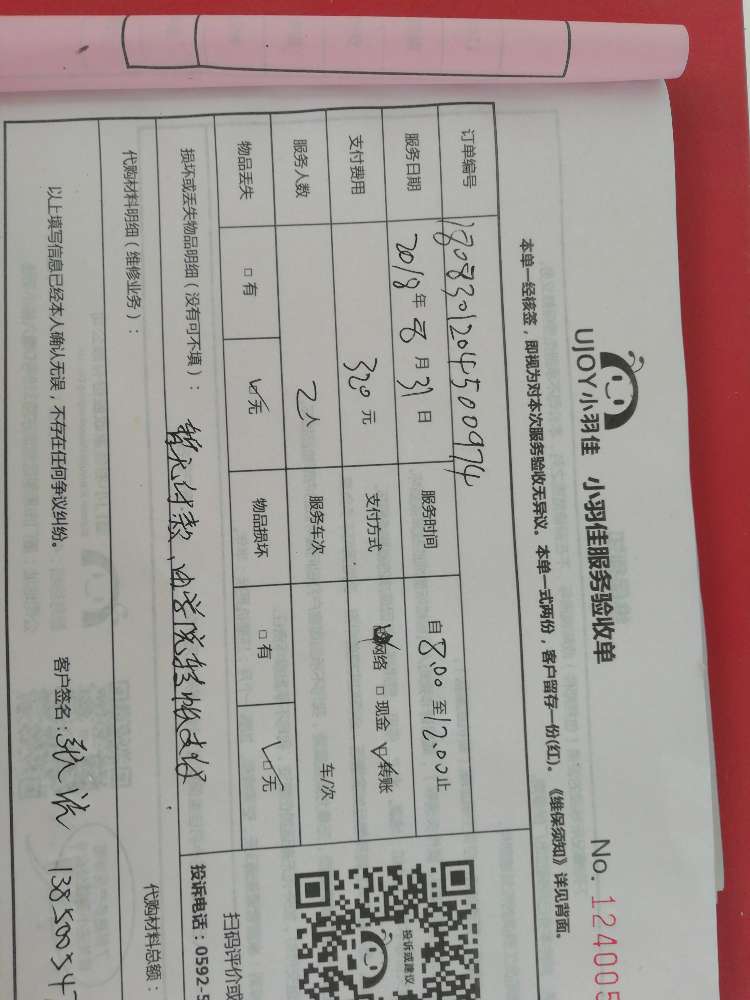 UJOY小羽佳 小羽佳服务验收单
No.124005
本单一经核签，即视为对本次服务验收无异议。本单一式两份，客户留存一份(红)。《维保须知》详见背面。
订单编号 1808301204500974
服务日期 2018年8月31日 服务时间 自8:00至12:00止
支付费用 320元 支付方式 ☑网络 □现金 ☑转账
服务人数 2人 服务车次 车/次
物品丢失 □有 ☑无 物品损坏 □有 ☑无
损坏或丢失物品明细（没有可不填）： 暂无付款，由学院转帐支付.
代购材料明细（维修业务）： 代购材料总额：
以上填写信息已经本人确认无误，不存在任何争议纠纷。 客户签名： 138500547
投诉或建议
扫码评价或
投诉电话：0592-5